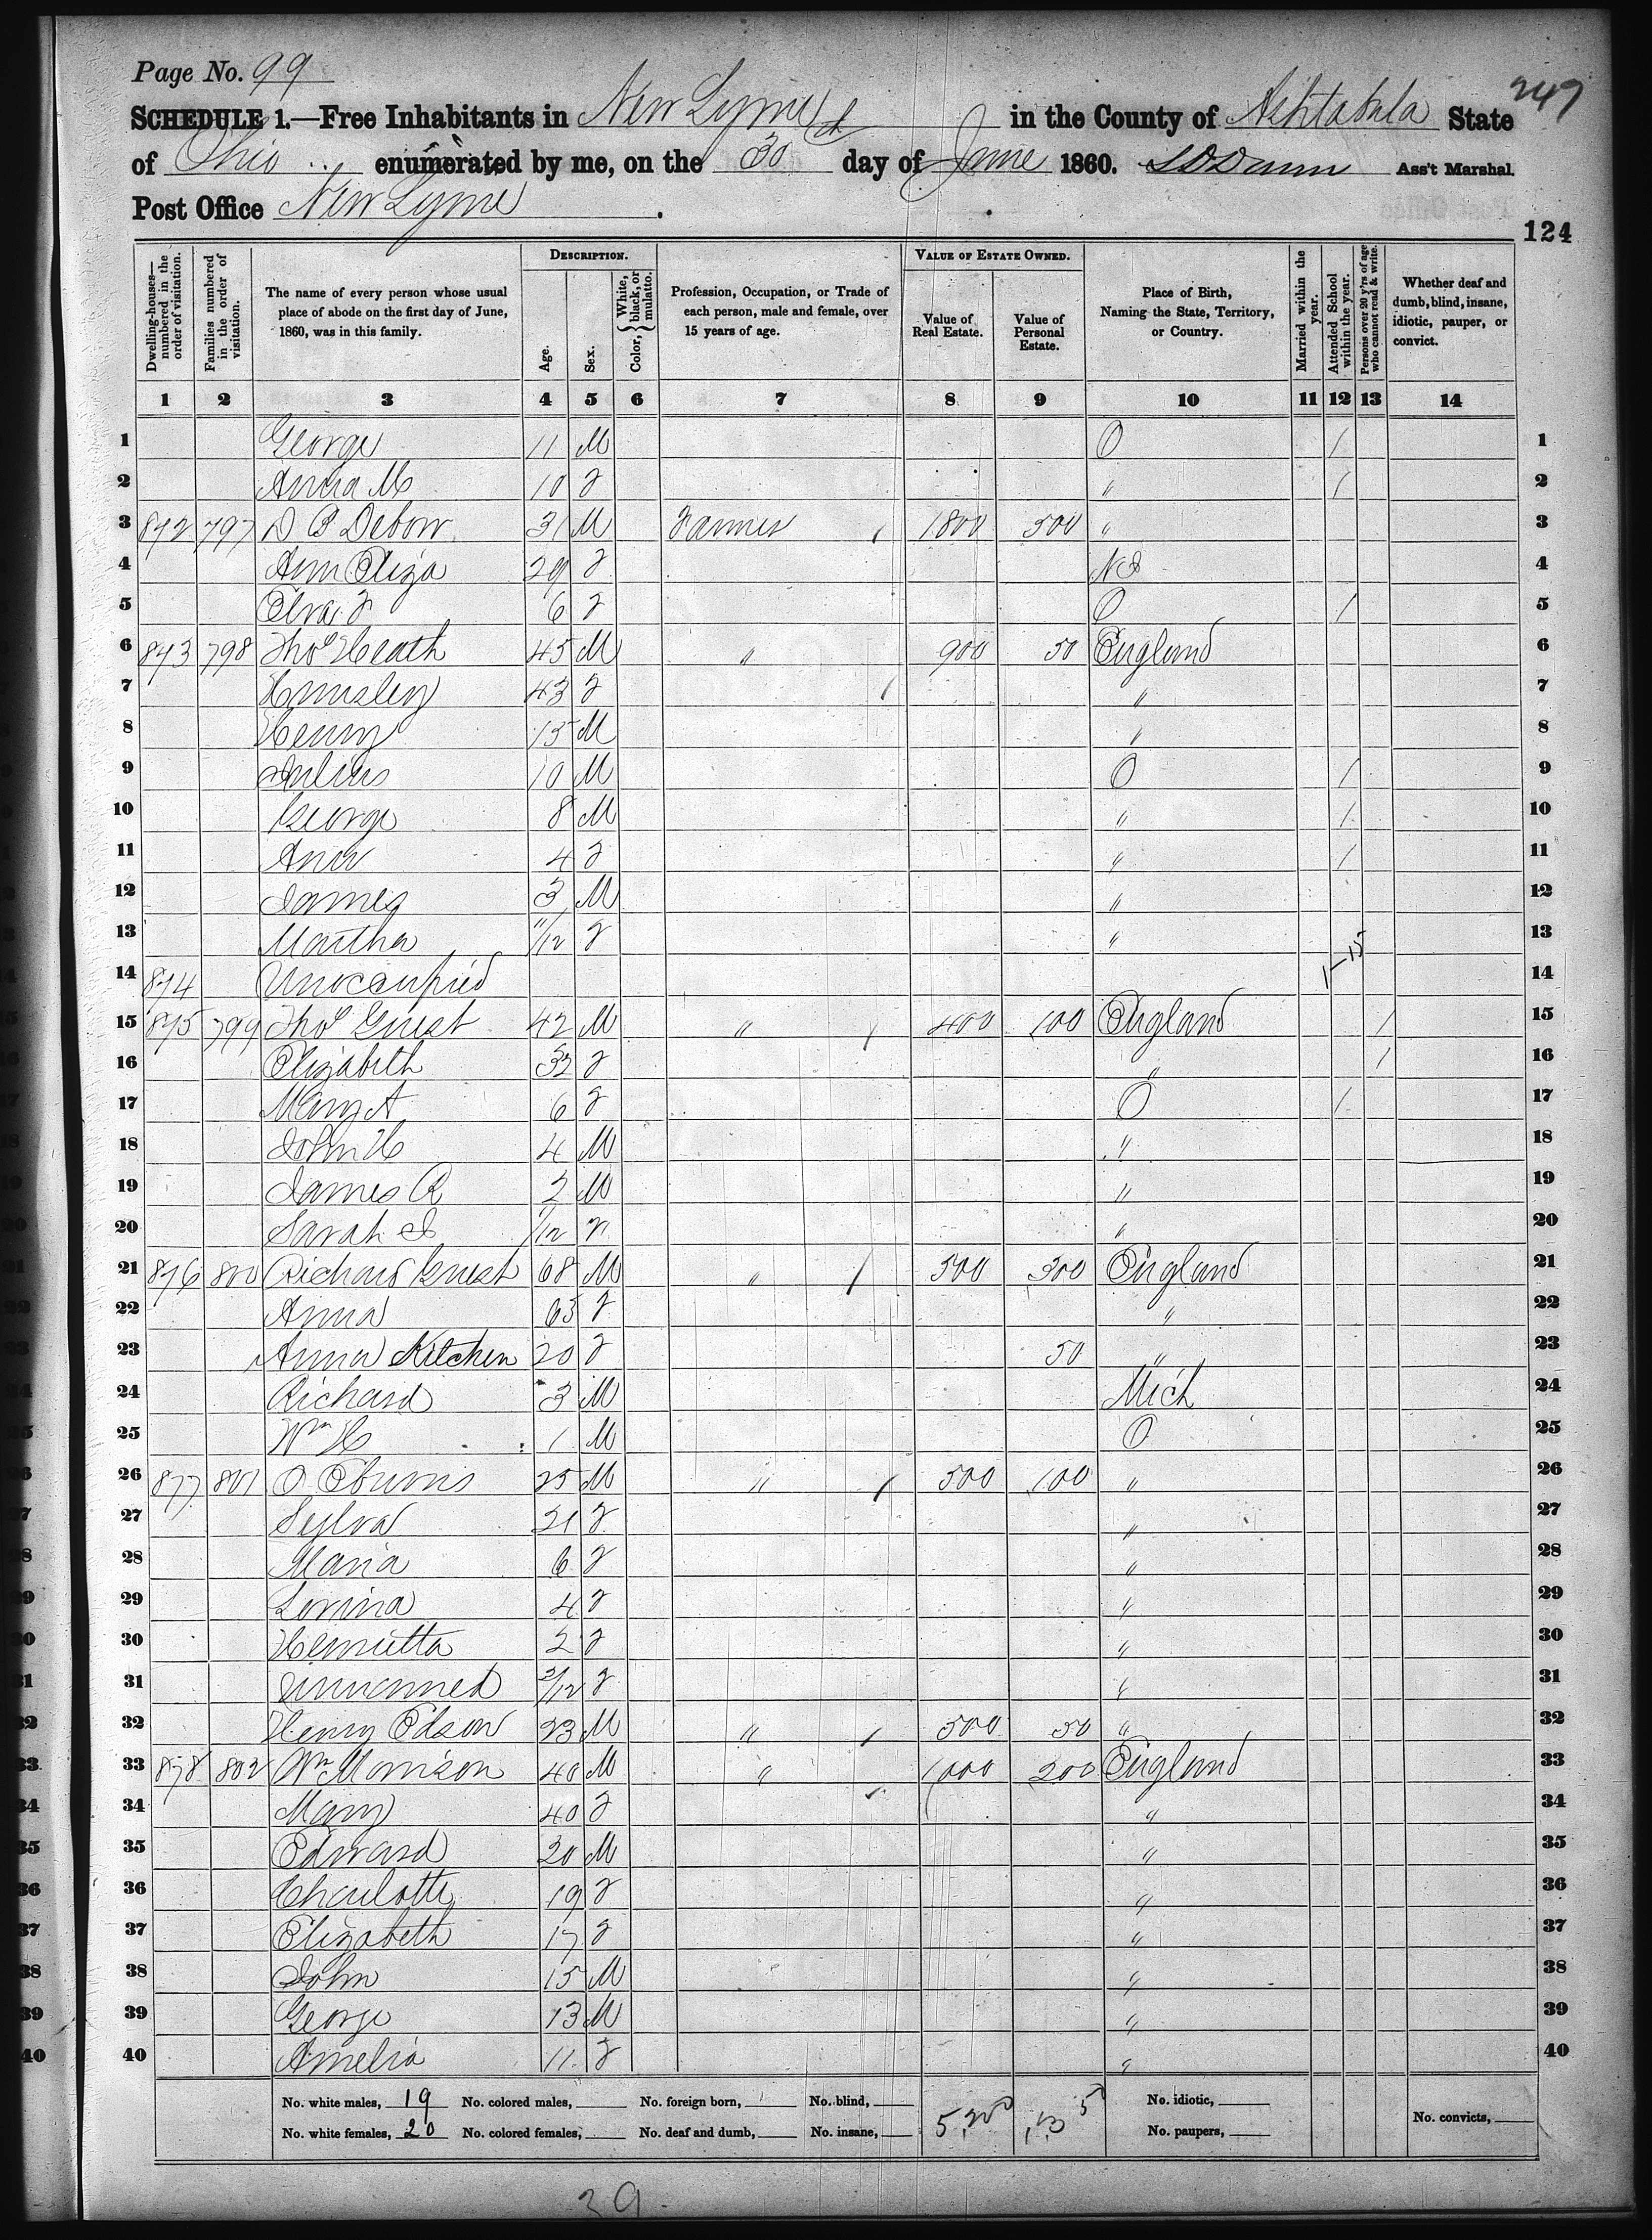 Page No. 99
247
SCHEDULE 1.—Free Inhabitants in New Lyme in the County of Ashtabula State
of Ohio enumerated by me, on the 30 day of June 1860. Ass't Marshal.
Post Office New Lyme
124
Dwelling-houses—numbered in the order of visitation.
Families numbered in the order of visitation.
The name of every person whose usual place of abode on the first day of June, 1860, was in this family.
DESCRIPTION.
Age.
Sex.
Color, { White, black, or mulatto.
Profession, Occupation, or Trade of each person, male and female, over 15 years of age.
VALUE OF ESTATE OWNED.
Value of Real Estate.
Value of Personal Estate.
Place of Birth, Naming the State, Territory, or Country.
Married within the year.
Attended School within the year.
Persons over 20 y'rs of age who cannot read & write.
Whether deaf and dumb, blind, insane, idiotic, pauper, or convict.
1 2 3 4 5 6 7 8 9 10 11 12 13 14
1 George 11 M O / 1
2 Anna M 10 F " / 2
3 872 797 D B Debow 31 M Farmer / 1800 500 " 3
4 Ann Eliza 29 F 4
5 Elva F 6 F O / 5
6 873 798 Thos Heath 45 M " 900 50 England 6
7 43 F / " 7
8 Henry 15 M " 8
9 Julius 10 M O / 9
10 George 8 M " / 10
11 Ann 4 F " / 11
12 James 3 M " 12
13 Martha 11/12 F " 13
1-15
14 874 Unoccupied 14
15 875 799 Thos Guest 42 M " / 400 100 England / 15
16 Elizabeth 32 F " / 16
17 Mary A 6 F O / 17
18 John H 4 M " 18
19 James R 2 M " 19
20 Sarah /12 F " 20
21 876 800 Richard Guest 68 M " / 500 300 England 21
22 Anna 65 F " 22
23 Anna Kitchen 20 F 50 " 23
24 Richard 3 M Mich 24
25 Wm H 1 M O 25
26 877 801 O 25 M " / 500 100 " 26
27 Sylva 21 F " 27
28 Maria 6 F " 28
29 Lovina 4 F " 29
30 Henrietta 2 F " 30
31 Unnamed 2/12 F " 31
32 Henry Edson 23 M " / 500 50 " 32
33 878 802 Wm Morrison 40 M " 1000 200 England 33
34 Mary 40 F / " 34
35 Edward 20 M " 35
36 Charlotte 19 F " 36
37 Elizabeth 17 F " 37
38 John 15 M " 38
39 George 13 M " 39
40 Amelia 11 F " 40
No. white males, 19 No. colored males, No. foreign born, No. blind, No. idiotic,
No. white females, 20 No. colored females, No. deaf and dumb, No. insane, No. paupers, No. convicts,
39